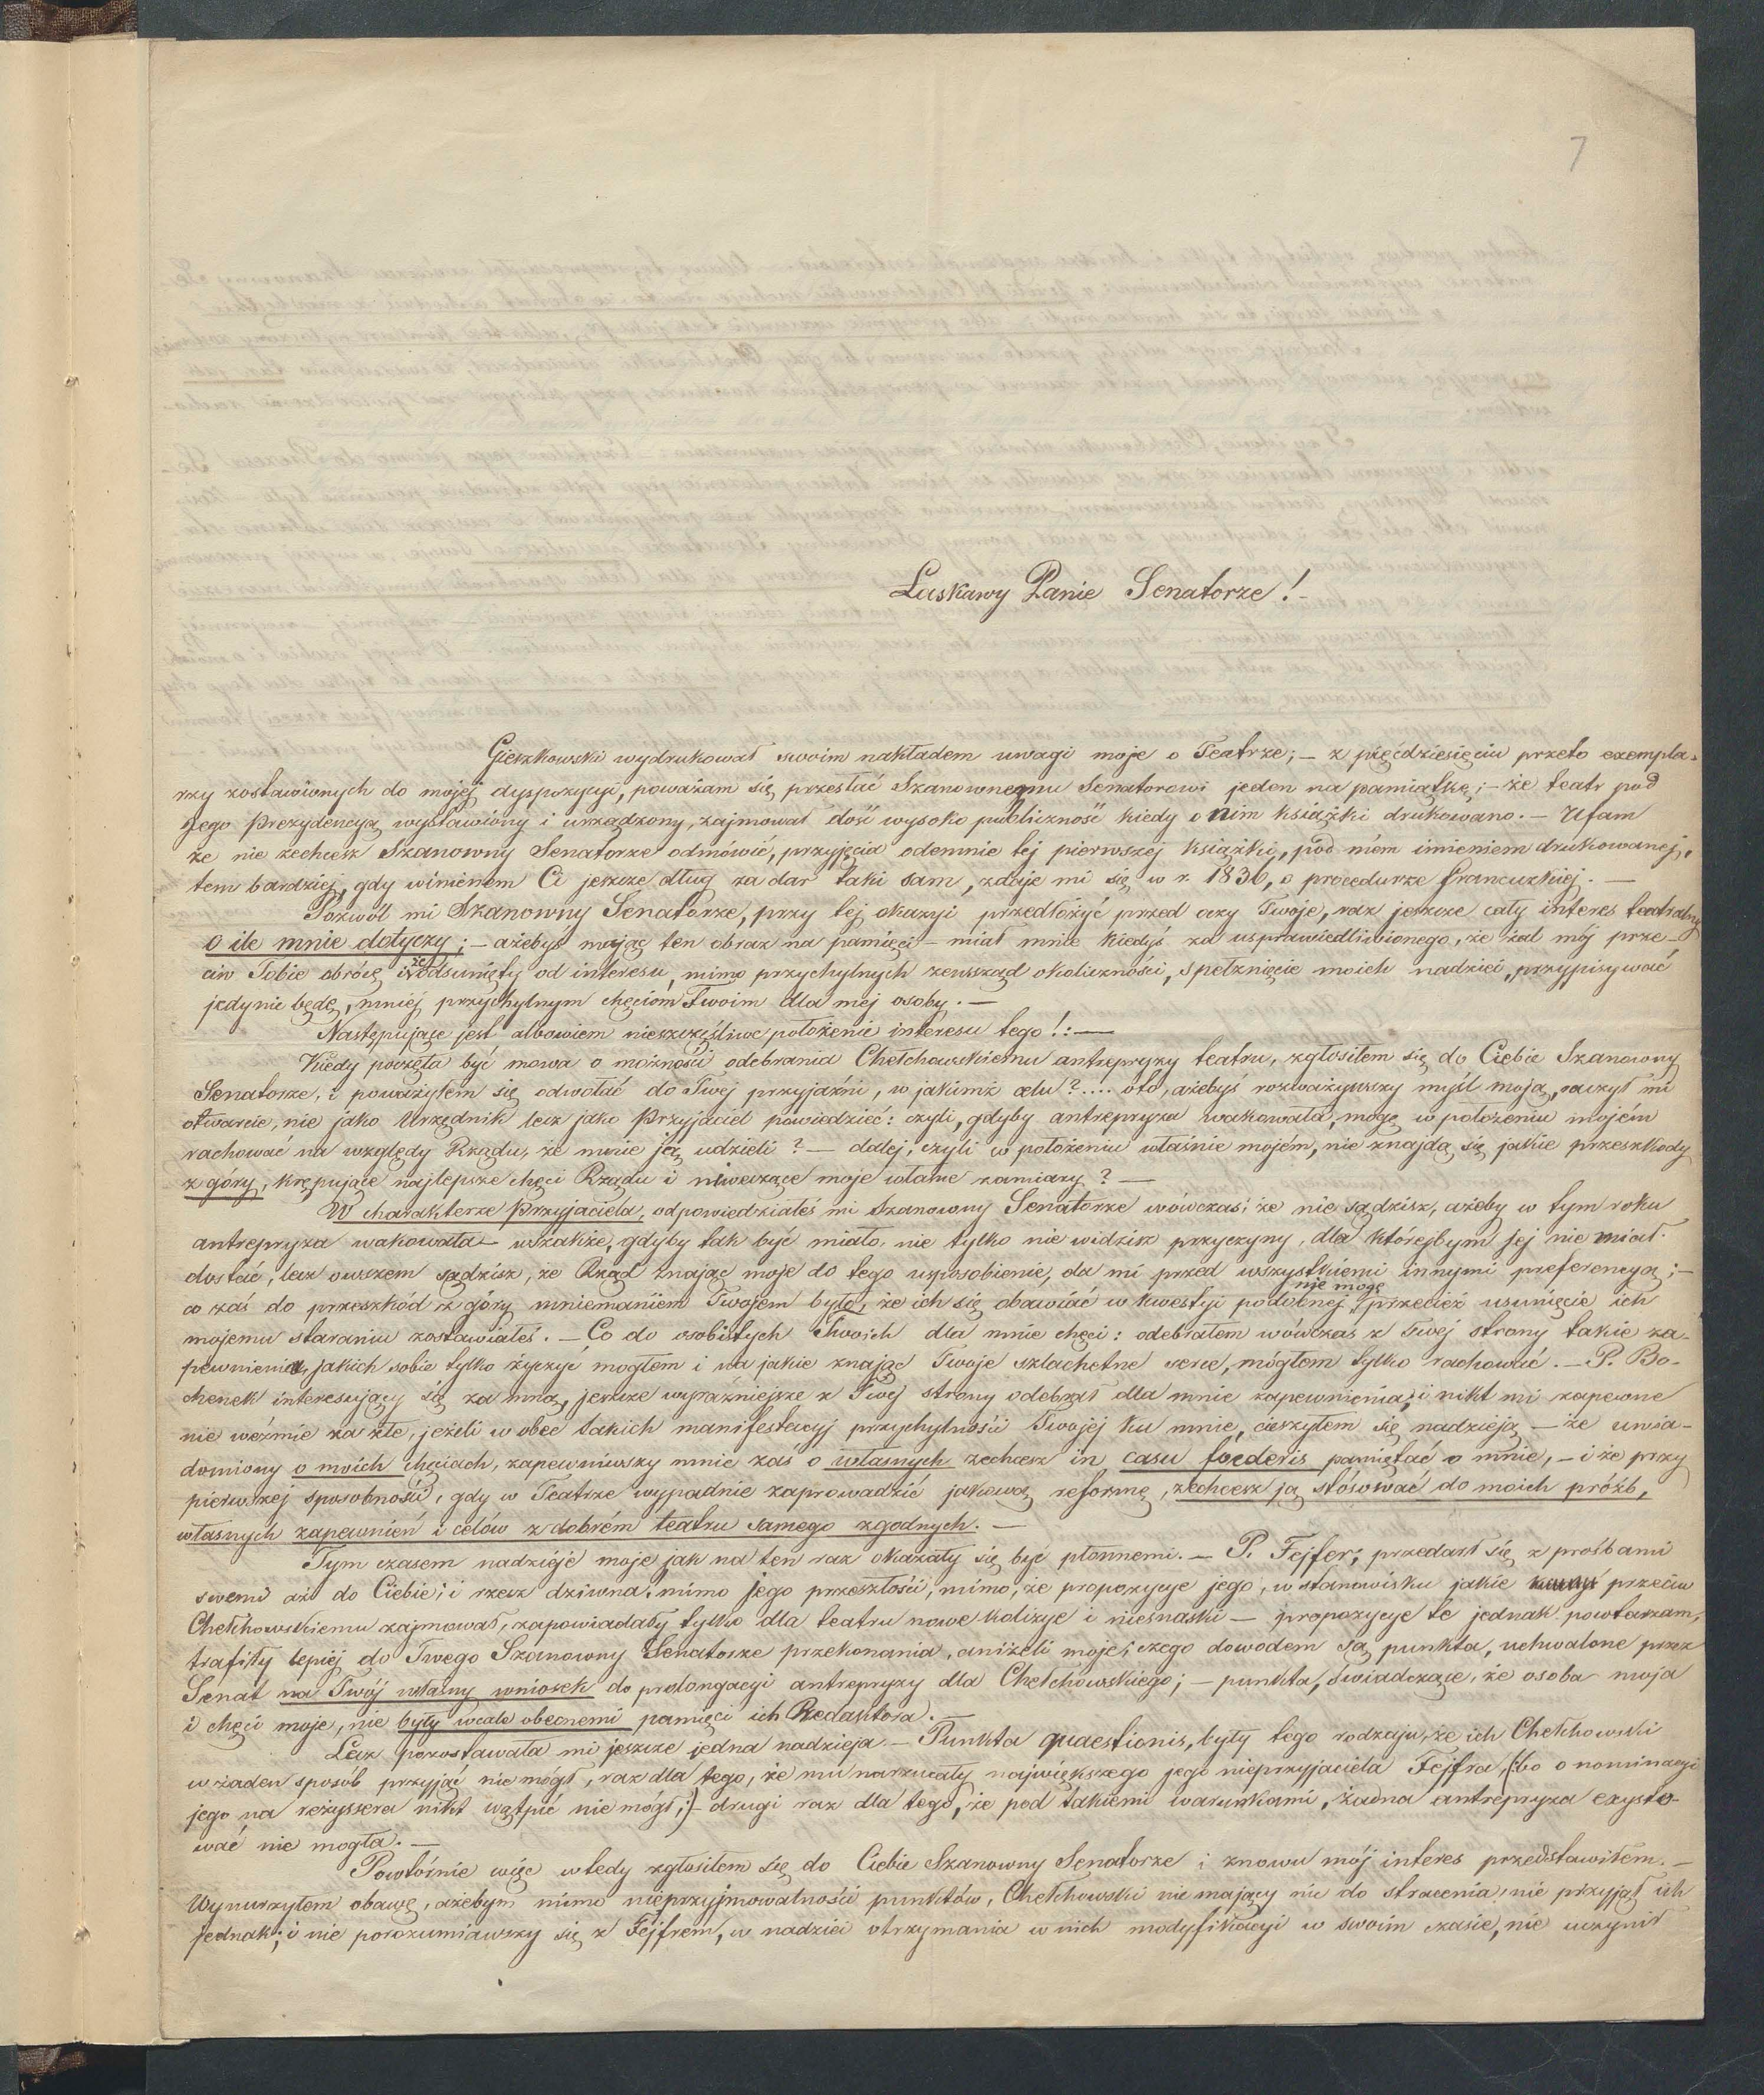 7
Łaskawy Panie Senatorze!-
Gieszkowski wydrukował swoim nakładem uwagi moje o Teatrze; – z pięćdziesięciu przeto exempla-
rzy zostawionych do mojéj dyspozycyi, poważam się przesłać Szanownemu Senatorowi jeden na pamiątkę; – że teatr pod
Jego Prezydencyą wystawiony i urządzony, zajmował dość wysoko publiczność kiedy o nim książki drukowano. – Ufam
że nie zechcesz Szanowny Senatorze odmówić, przyjęcia odemnie téj pierwszéj książki, pod mém imieniem drukowanéj,
tem bardziéj, gdy winienem Ci jeszcze dług za dar taki sam, zdaje mi się w r. 1836, o procedurze francuzkiéj. —
Pozwól mi Szanowny Senatorze, przy téj okazyi przedłożyć przed oczy Twoje, raz jeszcze cały interes teatralny
o ile mnie dotyczy; – ażebyś mając ten obraz na pamięci – miał mnie kiedyś za usprawiedliwionego, że żal mój prze-
ciw Tobie obrócę i że odsunięty od interesu, mimo przychylnych zewsząd okoliczności, spełznięcie moich nadziei, przypisywać
jedynie będę, mniéj przychylnym chęciom Twoim dla méj osoby. —
Następujące jest albowiem nieszczęśliwe położenie interesu tego!: —
Kiedy poczęła być mowa o możności odebrania Chełchowskiemu antrepryzy teatru, zgłosiłem się do Ciebie Szanowny
Senatorze, i poważyłem się odwołać do Twéj przyjaźni, w jakimż celu?.... oto, ażebyś rozważywszy myśl moją, raczył mi
otwarcie, nie jako Urzędnik lecz jako Przyjaciel powiedzieć: czyli, gdyby antrepryza wakowała, mogę w położeniu mojém
rachować na względy Rządu, że mnie ją udzieli? — daléj, czyli w położeniu właśnie mojém, nie znajdą się jakie przeszkody
z góry, krępujące najlepsze chęci Rządu i niweczące moje własne zamiary? —
W charakterze Przyjaciela, odpowiedziałeś mi Szanowny Senatorze wówczas; że nie sądzisz, ażeby w tym roku
antrepryza wakowała – wszakże, gdyby tak być miało, nie tylko nie widzisz przyczyny, dla któréjbym jéj nie miał
dostać, lecz owszem sądzisz, że Rząd znając moje do tego usposobienie, da mi przed wszystkiemi innymi preferencyą; –
nie mogę
co zaś do przeszkód z góry mniemaniem Twojem było, że ich się obawiać w kwestyi podobnéj, przecież usunięcie ich
mojemu staraniu zostawiałeś. – Co do osobistych Twoich dla mnie chęci: odebrałem wówczas z Twéj strony takie za-
pewnienia, jakich sobie tylko życzyć mogłem i na jakie znając Twoje szlachetne serce, mógłem tylko rachować. – P. Bo-
chenek interesujący się za mną, jeszcze wyraźniejsze z Twéj strony odebrał dla mnie zapewnienia; i nikt mi zapewne
nie weźmie za złe, jeżeli w obec takich manifestacyj przychylności Twojéj ku mnie, cieszyłem się nadzieją – że uwia-
domiony o moich chęciach, zapewniwszy mnie zaś o własnych zechcesz in casu foederis pamiętać o mnie, – i że przy
pierwszéj sposobności, gdy w Teatrze wypadnie zaprowadzić jakową reformę, zechcesz ją stósować do moich próźb,
własnych zapewnień i celów z dobrém teatru samego zgodnych. —
Tym czasem nadzieje moje jak na ten raz okazały się być płonnemi. – P. Fejfer, przedarł się z prośbami
swemi aż do Ciebie; i rzecz dziwna, mimo jego przeszłości, mimo, że propozycye jego, w stanowisku jakie przeciw
Chełchowskiemu zajmował, zapowiadały tylko dla teatru nowe kolizye i niesnaski – propozycye te jednak powtarzam,
trafiły lepiej do Twego Szanowny Senatorze przekonania, aniżeli moje; czego dowodem są punkta, uchwalone przez
Senat na Twój własny wniosek do prolongacyi antrepryzy dla Chełchowskiego; – punkta, świadczące, że osoba moja
i chęci moje, nie były wcale obecnemi pamięci ich Redaktora.
Lecz pozostawała mi jeszcze jedna nadzieja. – Punkta quaestionis, były tego rodzaju, że ich Chełchowski
w żaden sposób przyjąć nie mógł, raz dla tego, że mu narzucały największego jego nieprzyjaciela Fejfra, (:bo o nominacyi
jego na reżyssera nikt wątpić nie mógł;) – drugi raz dla tego, że pod takiemi warunkami, żadna antrepryza exysto-
wać nie mogła. —
Powtórnie więc wtedy zgłosiłem się do Ciebie Szanowny Senatorze i znowu mój interes przedstawiłem. –
Wynurzyłem obawę, ażebym mimo nieprzyjmowalności punktów, Chełchowski nie mający nic do stracenia, nie przyjął ich
jednak; i nie porozumiawszy się z Fejfrem, w nadziei otrzymania w nich modyfikacyi w swoim czasie, nie uczynił